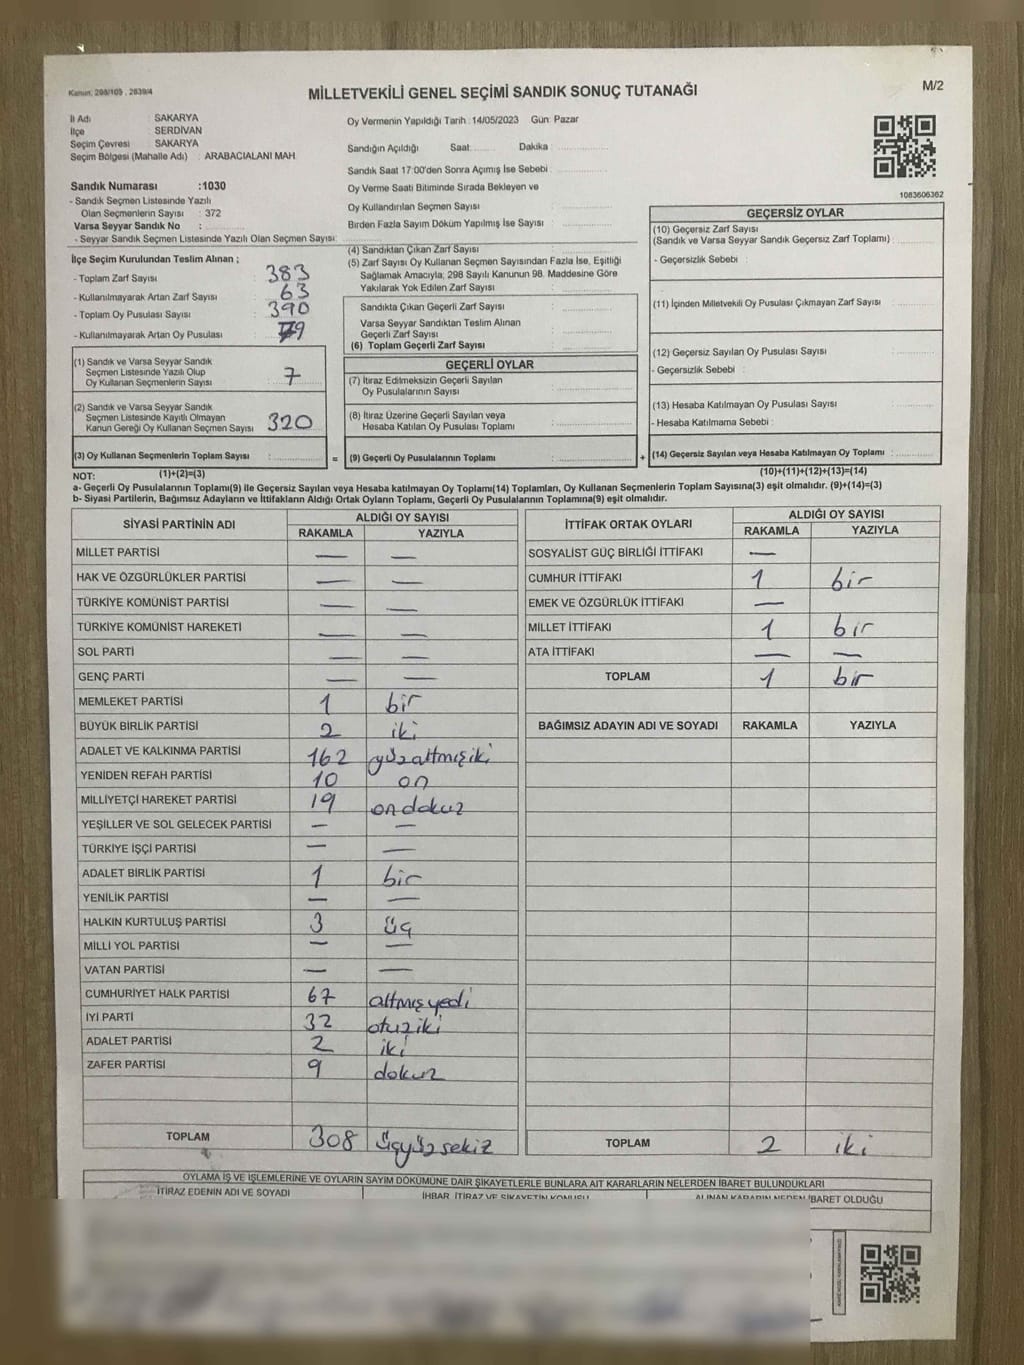 Kanun, 298/105 , 2839/4
MİLLETVEKİLİ GENEL SEÇİMİ SANDIK SONUÇ TUTANAĞI
M/2
İl Adı : SAKARYA
İlçe : SERDİVAN
Seçim Çevresi : SAKARYA
Seçim Bölgesi (Mahalle Adı) : ARABACIALANI MAH.
Sandık Numarası :1030
- Sandık Seçmen Listesinde Yazılı
Olan Seçmenlerin Sayısı : 372
Varsa Seyyar Sandık No :
- Seyyar Sandık Seçmen Listesinde Yazılı Olan Seçmen Sayısı:
İlçe Seçim Kurulundan Teslim Alınan ;
- Toplam Zarf Sayısı : 383
- Kullanılmayarak Artan Zarf Sayısı : 63
- Toplam Oy Pusulası Sayısı : 390
- Kullanılmayarak Artan Oy Pusulası : 79
(1) Sandık ve Varsa Seyyar Sandık
Seçmen Listesinde Yazılı Olup
Oy Kullanan Seçmenlerin Sayısı : 7
(2) Sandık ve Varsa Seyyar Sandık
Seçmen Listesinde Kayıtlı Olmayan
Kanun Gereği Oy Kullanan Seçmen Sayısı : 320
(3) Oy Kullanan Seçmenlerin Toplam Sayısı :
(1)+(2)=(3)
Oy Vermenin Yapıldığı Tarih :14/05/2023 Gün: Pazar
Sandığın Açıldığı Saat: Dakika :
Sandık Saat 17:00'den Sonra Açımış İse Sebebi :
Oy Verme Saati Bitiminde Sırada Bekleyen ve
Oy Kullandırılan Seçmen Sayısı :
Birden Fazla Sayım Döküm Yapılmış İse Sayısı :
(4) Sandıktan Çıkan Zarf Sayısı :
(5) Zarf Sayısı Oy Kullanan Seçmen Sayısından Fazla İse, Eşitliği
Sağlamak Amacıyla; 298 Sayılı Kanunun 98. Maddesine Göre
Yakılarak Yok Edilen Zarf Sayısı :
Sandıkta Çıkan Geçerli Zarf Sayısı :
Varsa Seyyar Sandıktan Teslim Alınan
Geçerli Zarf Sayısı :
(6) Toplam Geçerli Zarf Sayısı :
GEÇERLİ OYLAR
(7) İtiraz Edilmeksizin Geçerli Sayılan
Oy Pusulalarının Sayısı :
(8) İtiraz Üzerine Geçerli Sayılan veya
Hesaba Katılan Oy Pusulası Toplamı :
= (9) Geçerli Oy Pusulalarının Toplamı :
1083606362
GEÇERSİZ OYLAR
(10) Geçersiz Zarf Sayısı
(Sandık ve Varsa Seyyar Sandık Geçersiz Zarf Toplamı) :
- Geçersizlik Sebebi :
(11) İçinden Milletvekili Oy Pusulası Çıkmayan Zarf Sayısı :
(12) Geçersiz Sayılan Oy Pusulası Sayısı :
- Geçersizlik Sebebi :
(13) Hesaba Katılmayan Oy Pusulası Sayısı :
- Hesaba Katılmama Sebebi :
+ (14) Geçersiz Sayılan veya Hesaba Katılmayan Oy Toplamı :
(10)+(11)+(12)+(13)=(14)
NOT:
a- Geçerli Oy Pusulalarının Toplamı(9) ile Geçersiz Sayılan veya Hesaba Katılmayan Oy Toplamı(14) Toplamları, Oy Kullanan Seçmenlerin Toplam Sayısına(3) eşit olmalıdır. (9)+(14)=(3)
b- Siyasi Partilerin, Bağımsız Adayların ve İttifakların Aldığı Ortak Oyların Toplamı, Geçerli Oy Pusulalarının Toplamına(9) eşit olmalıdır.
SİYASİ PARTİNİN ADI ALDIĞI OY SAYISI
RAKAMLA YAZIYLA
MİLLET PARTİSİ — —
HAK VE ÖZGÜRLÜKLER PARTİSİ — —
TÜRKİYE KOMÜNİST PARTİSİ — —
TÜRKİYE KOMÜNİST HAREKETİ — —
SOL PARTİ — —
GENÇ PARTİ — —
MEMLEKET PARTİSİ 1 bir
BÜYÜK BİRLİK PARTİSİ 2 iki
ADALET VE KALKINMA PARTİSİ 162 yüzaltmışiki
YENİDEN REFAH PARTİSİ 10 on
MİLLİYETÇİ HAREKET PARTİSİ 19 ondokuz
YEŞİLLER VE SOL GELECEK PARTİSİ — —
TÜRKİYE İŞÇİ PARTİSİ — —
ADALET BİRLİK PARTİSİ 1 bir
YENİLİK PARTİSİ — —
HALKIN KURTULUŞ PARTİSİ 3 üç
MİLLİ YOL PARTİSİ — —
VATAN PARTİSİ — —
CUMHURİYET HALK PARTİSİ 67 altmışyedi
İYİ PARTİ 32 otuziki
ADALET PARTİSİ 2 iki
ZAFER PARTİSİ 9 dokuz
TOPLAM 308 üçyüzsekiz
İTTİFAK ORTAK OYLARI ALDIĞI OY SAYISI
RAKAMLA YAZIYLA
SOSYALİST GÜÇ BİRLİĞİ İTTİFAKI —
CUMHUR İTTİFAKI 1 bir
EMEK VE ÖZGÜRLÜK İTTİFAKI —
MİLLET İTTİFAKI 1 bir
ATA İTTİFAKI — —
TOPLAM 1 bir
BAĞIMSIZ ADAYIN ADI VE SOYADI RAKAMLA YAZIYLA
TOPLAM 2 iki
OYLAMA İŞ VE İŞLEMLERİNE VE OYLARIN SAYIM DÖKÜMÜNE DAİR ŞİKAYETLERLE BUNLARA AİT KARARLARIN NELERDEN İBARET BULUNDUKLARI
İTİRAZ EDENİN ADI VE SOYADI
İHBAR, İTİRAZ VE ŞİKAYETİN KONUSU
ALINAN KARARIN NEDEN İBARET OLDUĞU